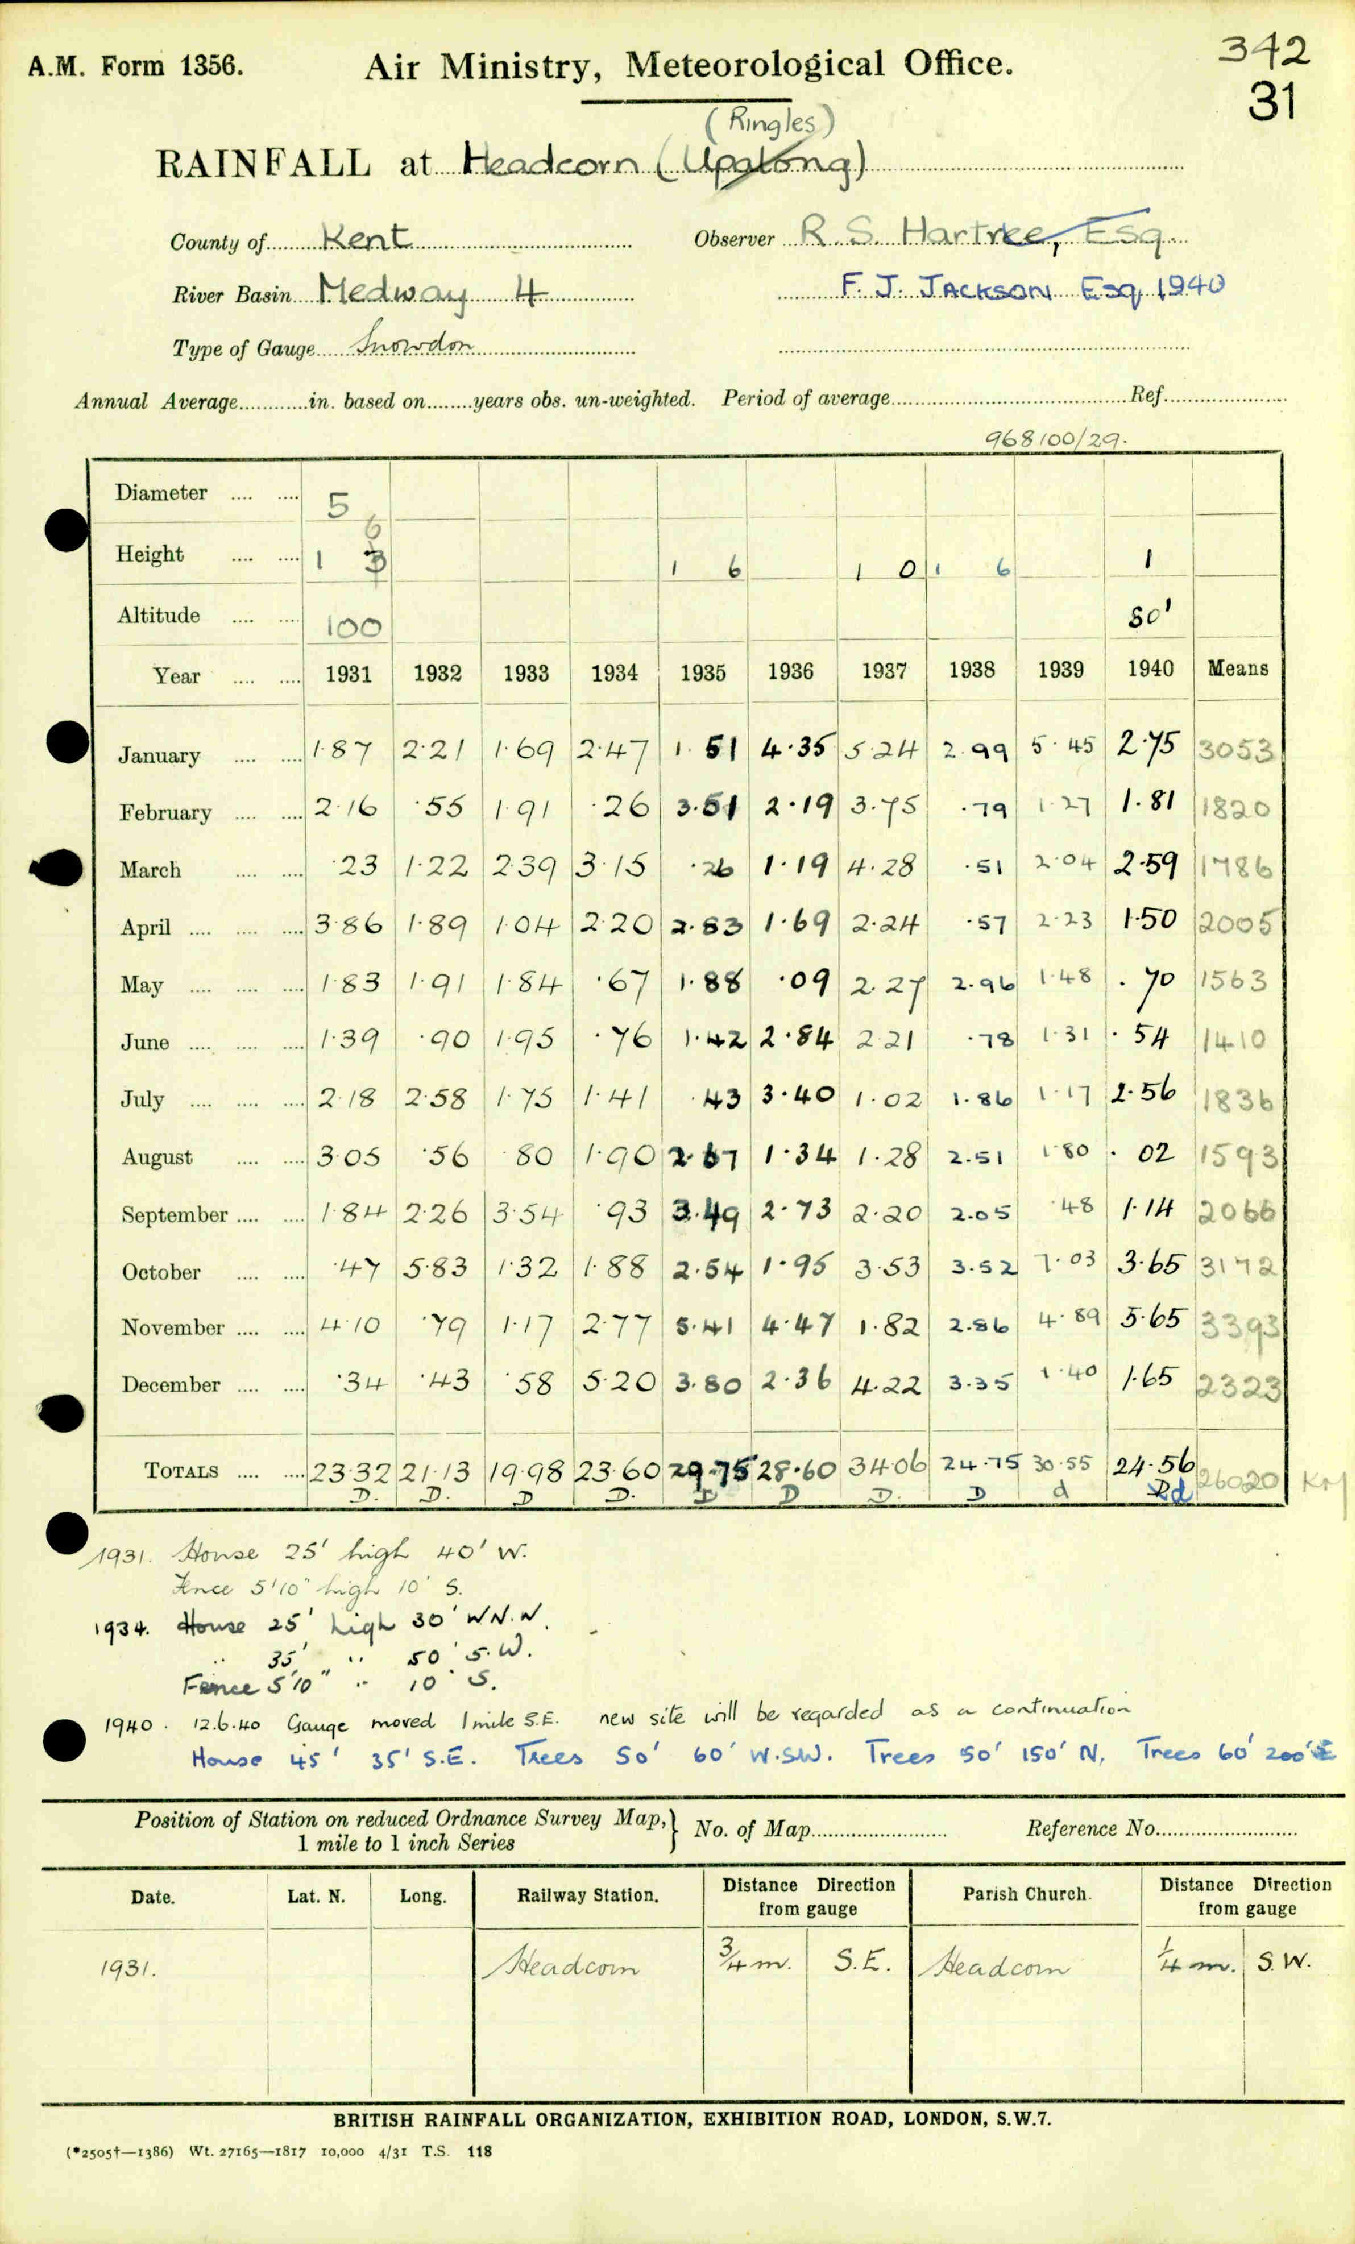 A.M. Form 1356. Air Ministry, Meteorological Office. 342
31
(Ringles)
RAINFALL at Headcorn (Upalong)
County of Kent Observer R.S. Hartree, Esq.
River Basin Medway 4 F. J. JACKSON Esq, 1940
Type of Gauge Snowdon
Annual Average in. based on years obs. un-weighted. Period of average Ref.
968100/29.
Diameter 5
6
Height 1 3 1 6 1 0 1 6 1
Altitude 100 80'
Year 1931 1932 1933 1934 1935 1936 1937 1938 1939 1940 Means
January 1·87 2·21 1·69 2·47 1·51 4·35 5·24 2.99 5·45 2·75 3053
February 2·16 ·55 1·91 ·26 3·51 2·19 3·75 ·79 1·27 1·81 1820
March ·23 1·22 2·39 3·15 ·26 1·19 4·28 ·51 2·04 2·59 1786
April 3·86 1·89 1·04 2·20 2·83 1·69 2·24 ·57 2·23 1·50 2005
May 1·83 1·91 1·84 ·67 1·88 ·09 2·27 2.96 1·48 ·70 1563
June 1·39 ·90 1·95 ·76 1·42 2·84 2·21 ·78 1·31 ·54 1410
July 2·18 2·58 1·75 1·41 ·43 3·40 1·02 1.86 1·17 2·56 1836
August 3·05 ·56 ·80 1·90 2·67 1·34 1·28 2.51 1·80 ·02 1593
September 1·84 2·26 3·54 ·93 3·49 2·73 2·20 2.05 ·48 1·14 2066
October ·47 5·83 1·32 1·88 2·54 1·95 3·53 3.52 7·03 3·65 3172
November 4·10 ·79 1·17 2·77 5·41 4·47 1·82 2.86 4·89 5·65 3393
December ·34 ·43 ·58 5·20 3·80 2·36 4·22 3·35 1·40 1·65 2323
TOTALS 23·32 21·13 19·98 23·60 29·75 28·60 34·06 24·75 30·55 24·56 26020
D. D. D D. D D D. D d d
1931. House 25' high 40' W.
Fence 5'10" high 10' S.
1934. House 25' high 30' W.N.W.
" 35' " 50' S.W.
Fence 5'10" " 10' S.
1940. 12.6.40 Gauge moved 1 mile S.E. new site will be regarded as a continuation
House 45' 35' S.E. Trees 50' 60' W.SW. Trees 50' 150' N, Trees 60' 200' E
Position of Station on reduced Ordnance Survey Map,} No. of Map Reference No.
1 mile to 1 inch Series
Date. Lat. N. Long. Railway Station. Distance Direction from gauge Parish Church. Distance Direction from gauge
1931. Headcorn 3/4 m. S.E. Headcorn 1/4 m. S.W.
BRITISH RAINFALL ORGANIZATION, EXHIBITION ROAD, LONDON, S.W.7.
(*2505†—1386) Wt. 27165—1817 10,000 4/31 T.S. 118